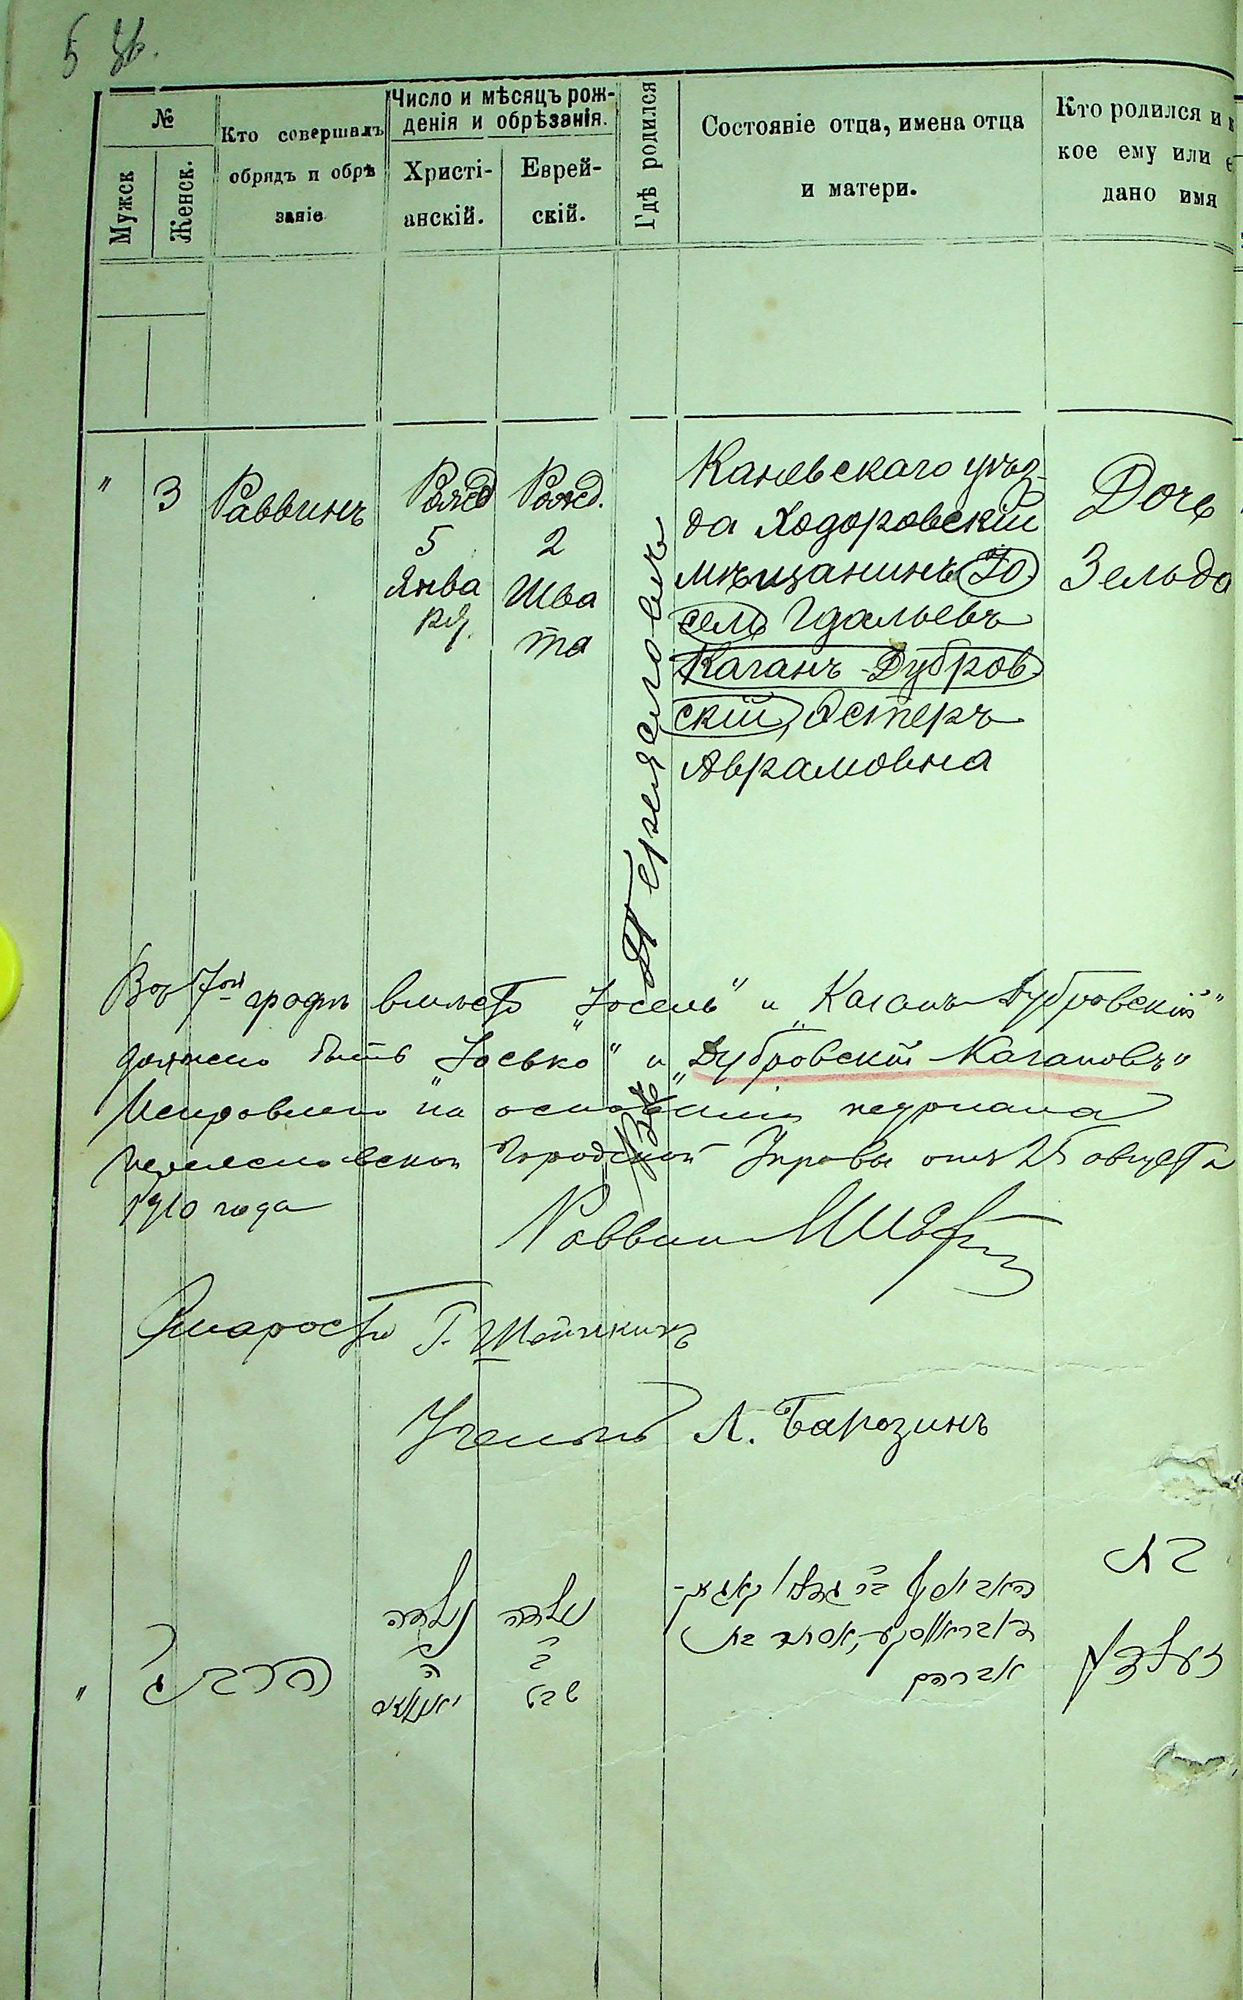 №
Мужск
Женск.
Кто совершалъ
обрядъ и обрѣ
заніе
Число и мѣсяцъ рож-
денія и обрѣзанія.
Христі-
анскій.
Еврей-
скій.
Гдѣ родился
Состояніе отца, имена отца
и матери.
Кто родился и к
кое ему или е
дано имя
" 3 Раввинъ
Рожд
5
Янва
ря.
Рожд.
2
Шва
та
Въ Переяславѣ
Каневскаго уѣз-
да Ходоровскій
мѣщанинъ Іо
сель Гдальевъ
Каганъ-Дубров
скій, Эстеръ
Аврамовна
Дочь
Зельда
Въ 7ой графѣ вмѣсто "Іосель" и "Каганъ Дубровскій"
должно быть "Іосько" и "Дубровскій Кагановъ"
Исправлено на основаніи журнала
Переяславской Городской Управы отъ 25 августа
1910 года
Раввинъ
Староста Г.
Ученый Л. Барозинъ
לידה
ה
לידה
ב
שבט
בת
אברהם
"